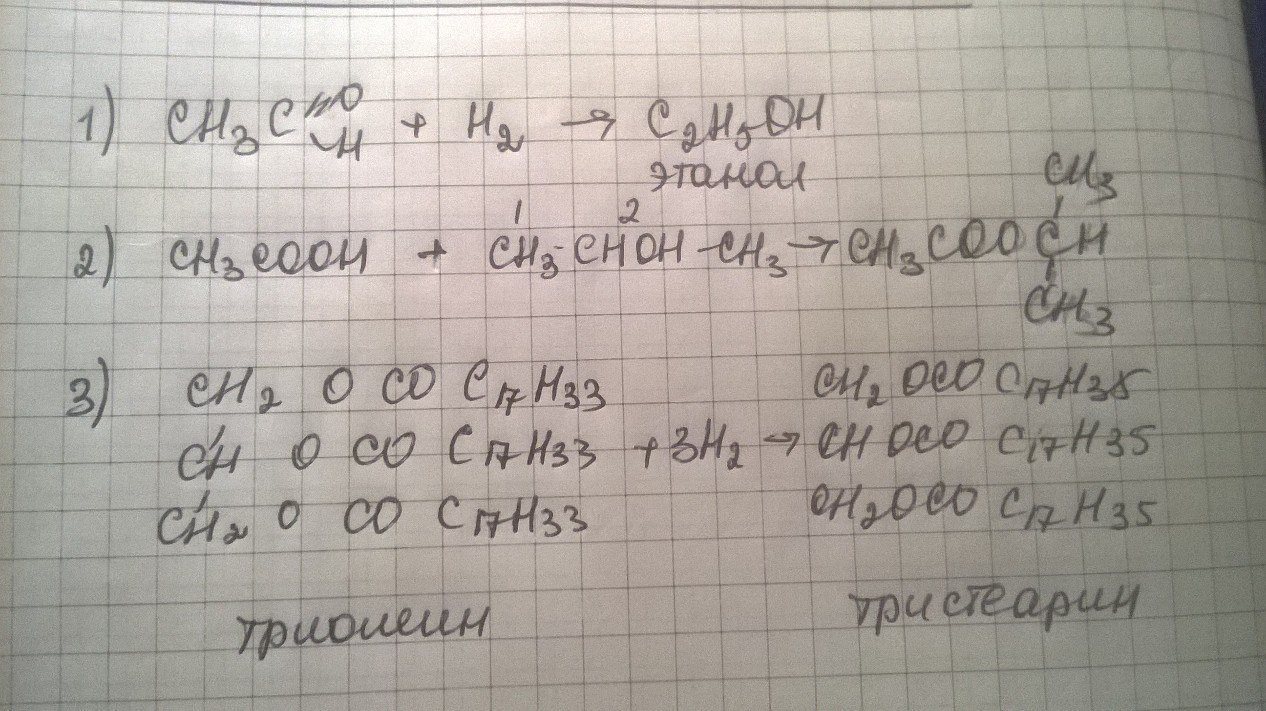 1) CH₃C=O -H + H₂ → C₂H₅OH
этанол
CH₃
1 2
2) CH₃COOH + CH₃-CHOH-CH₃ → CH₃COOCH
CH₃
3) CH₂ O CO C₁₇H₃₃ CH₂ OCO C₁₇H₃₅
CH O CO C₁₇H₃₃ + 3H₂ → CH OCO C₁₇H₃₅
CH₂ O CO C₁₇H₃₃ CH₂OCO C₁₇H₃₅
триолеин тристеарин